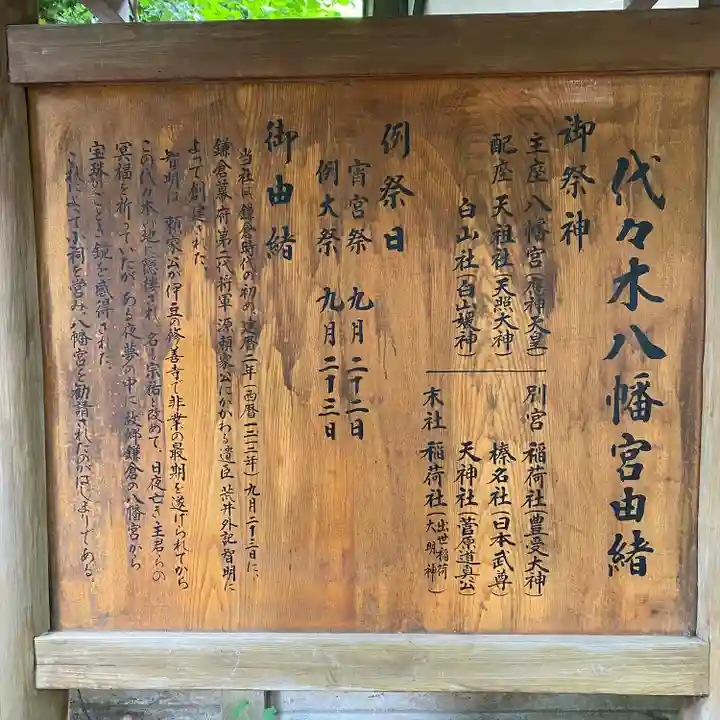 代々木八幡宮由緒
御祭神
主座 八幡宮(應神天皇)
別宮 稲荷社(豊受大神)
配座 天祖社(天照大神)
榛名社(日本武尊)
白山社(白山媛神)
天神社(菅原道真公)
末社 稲荷社(出世稲荷大明神)
例祭日
宵宮祭 九月二十二日
例大祭 九月二十三日
御由緒
当社は鎌倉時代の初め、建暦二年(西暦一二一二年)九月二十三日に、
鎌倉幕府第二代将軍源頼家公にかかわる遺臣荒井外記智明に
よって創建された。
智明は、頼家公が伊豆の修善寺で非業の最期を遂げられてから
この代々木の地に隠棲され、名も宗祐と改めて、日夜亡き主君らの
冥福を祈っていたが、ある夜夢の中に故郷鎌倉の八幡宮から
宝珠のごとき鏡を感得された。
これによって小祠を営み、八幡宮を勧請されたのがはじまりである。